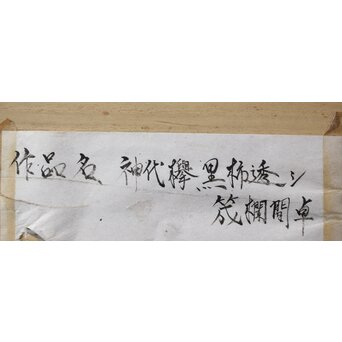 作品名 神代欅黒柿透シ
筬欄間卓